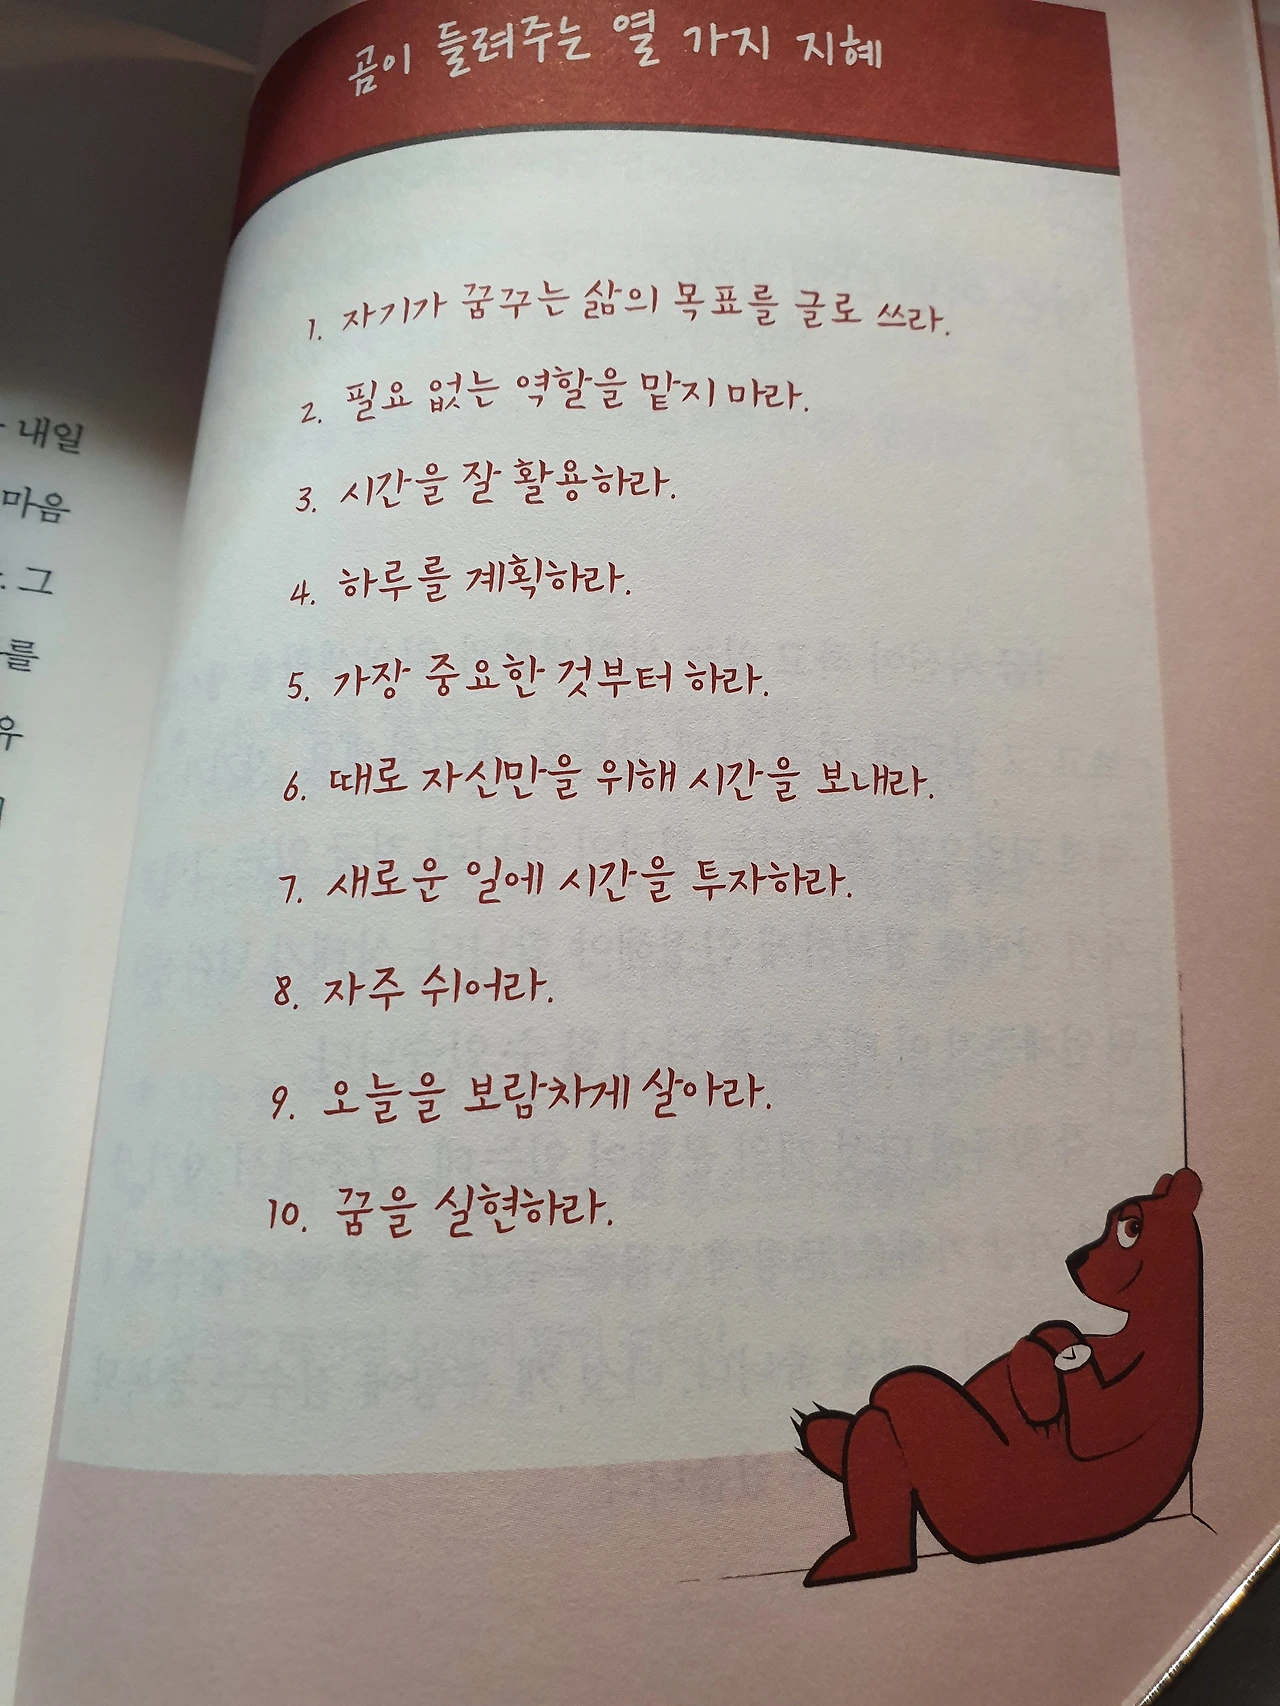 곰이 들려주는 열 가지 지혜
1. 자기가 꿈꾸는 삶의 목표를 글로 쓰라.
2. 필요 없는 역할을 맡지 마라.
3. 시간을 잘 활용하라.
4. 하루를 계획하라.
5. 가장 중요한 것부터 하라.
6. 때로 자신만을 위해 시간을 보내라.
7. 새로운 일에 시간을 투자하라.
8. 자주 쉬어라.
9. 오늘을 보람차게 살아라.
10. 꿈을 실현하라.
내일
마음
그
를
유